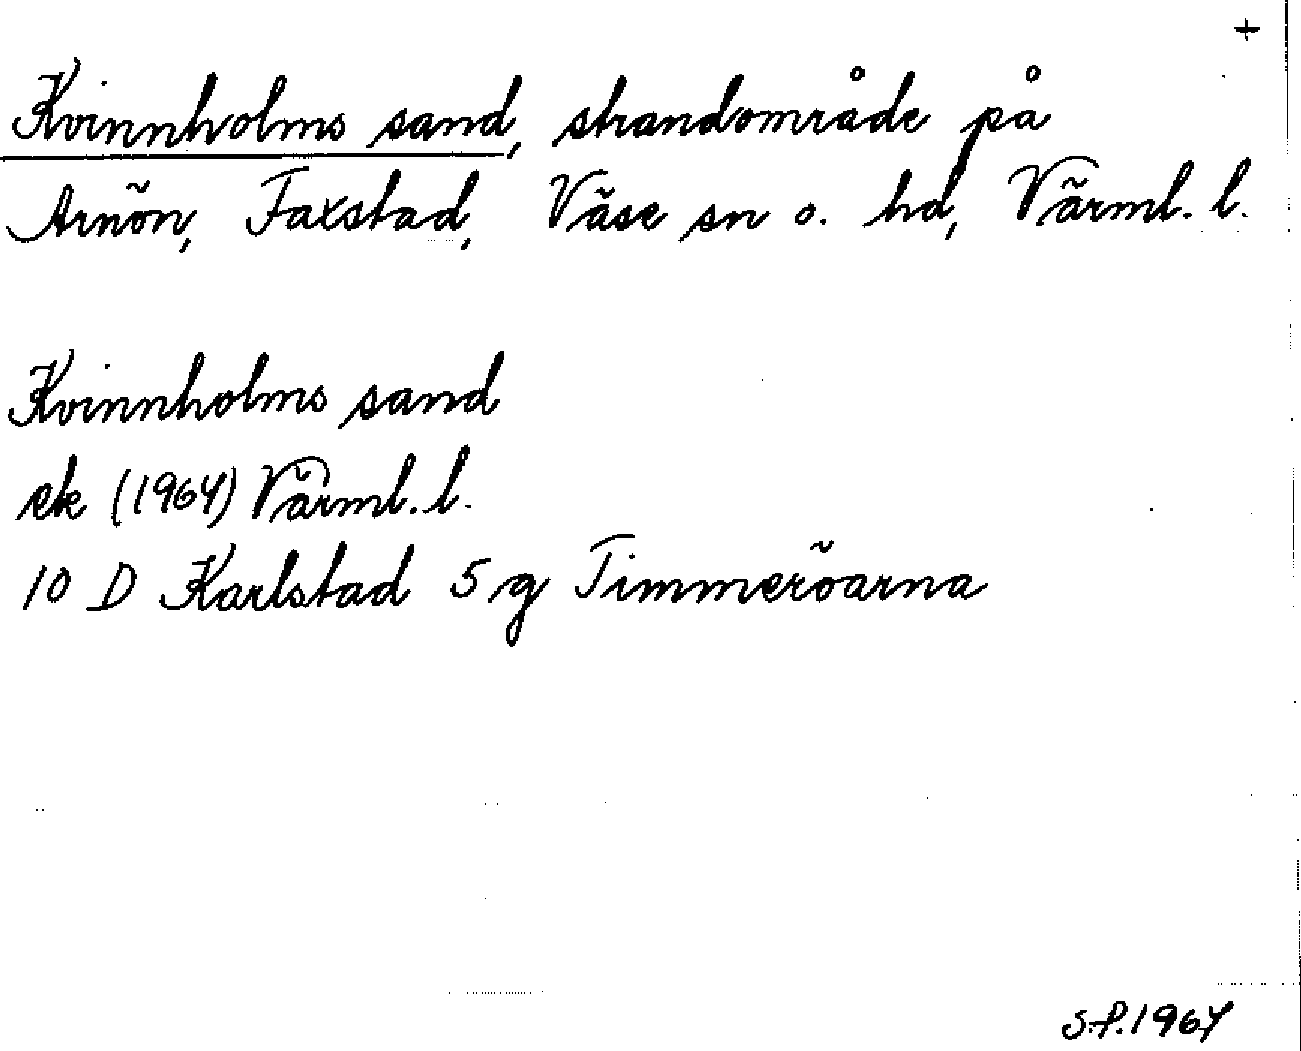 +
Kvinnholms sand, strandområde på
Arnön, Faxstad, Väse sn o. hd, Värml. l.
Kvinnholms sand
ek (1964) Värml. l.
10 D Karlstad 5 g Timmeröarna
S.P. 1964